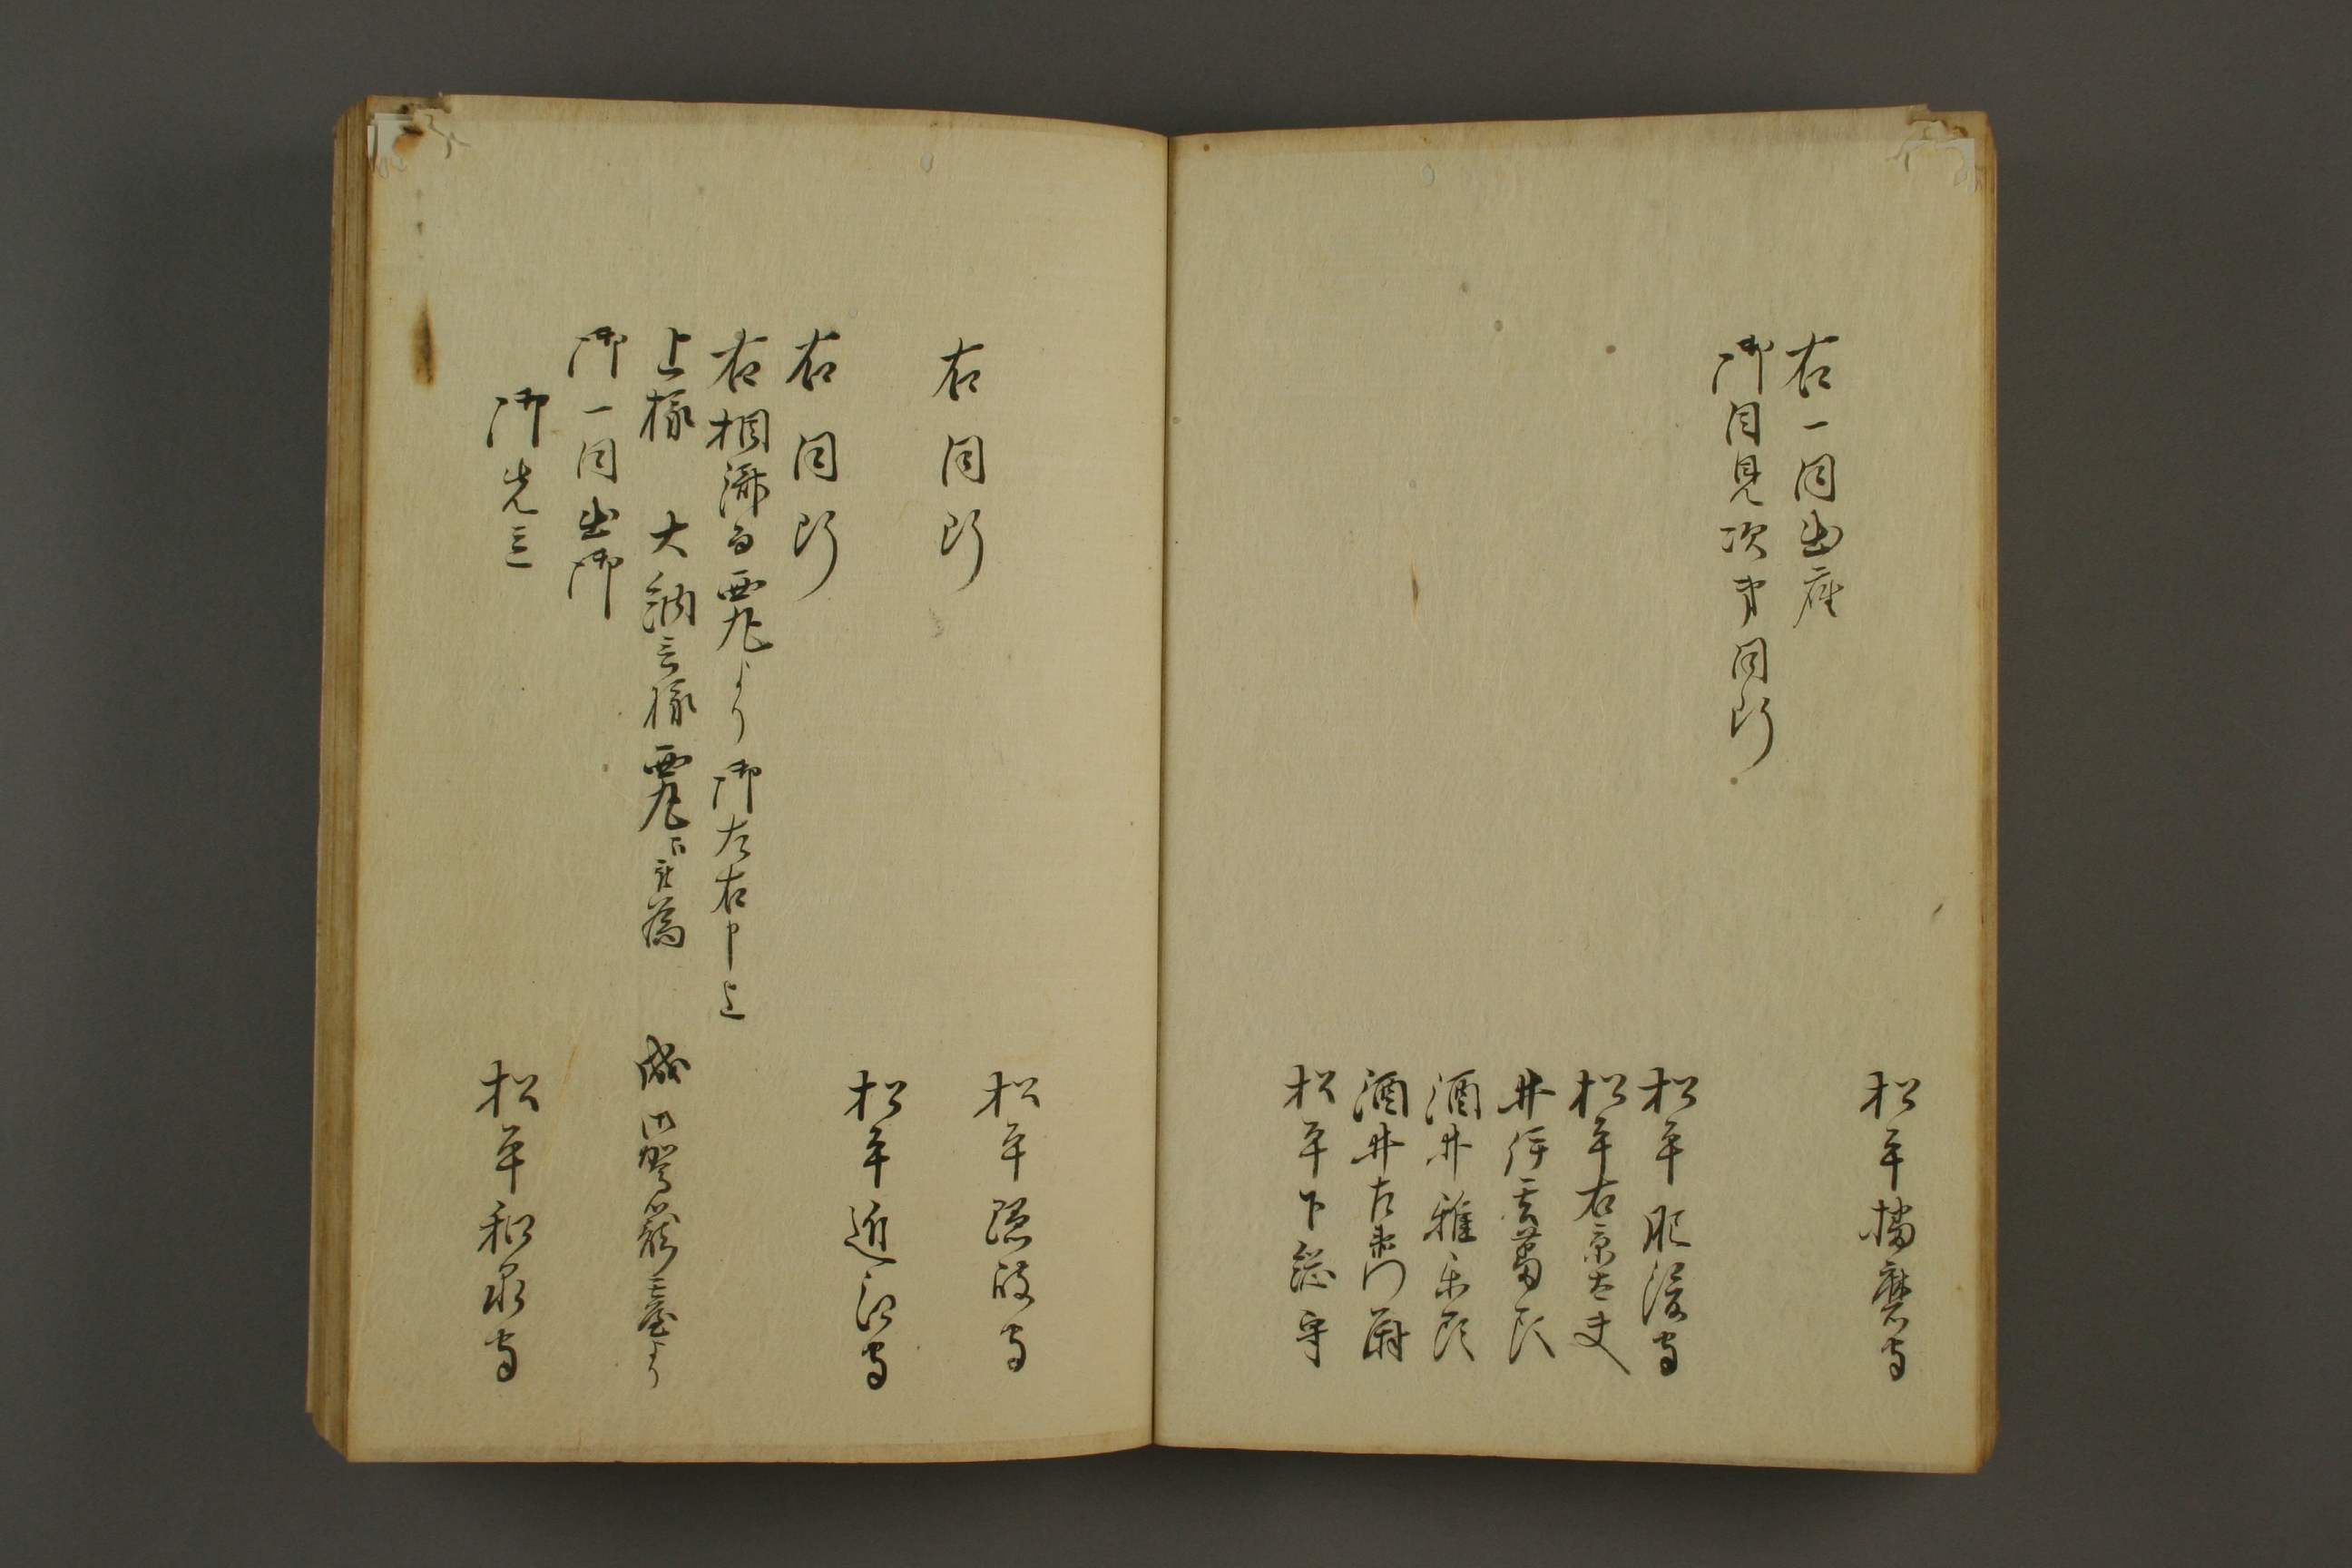 松平播磨守
右一同出座
御目見次第同断
松平肥後守
松平右京大夫
井伊掃部頭
酒井雅楽頭
酒井左衛門尉
松平下総守
松平隠岐守
右同断
松平近江守
右同断
右相済而西丸より御左右申上
上様 大納言様西丸江被為 成御駕籠臺より
御一同出御
御先立
松平和泉守